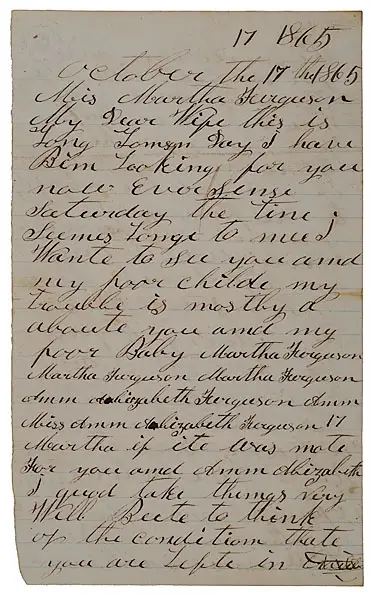 17 1865
October the 17 th 1865
Miss Martha Ferguson
My Dear Wife this is
Long Lomsn Day I have
Bim Looking for you
now Ever Sense
Saturday the time
Seemes Longe to mee I
Wante to See you amd
my poor childe my
trouble is mostby a
aboute you amd my
poor Baby Martha Ferguson
Martha Ferguson Martha Ferguson
Amm Alizabeth Ferguson Amm
Miss Amm Alizabeth Ferguson 17
Martha if ite was mote
For you amd Amm Alizabeth
I gued take themgs very
Well Beete to think
of the comditiom thate
you are Lefte in